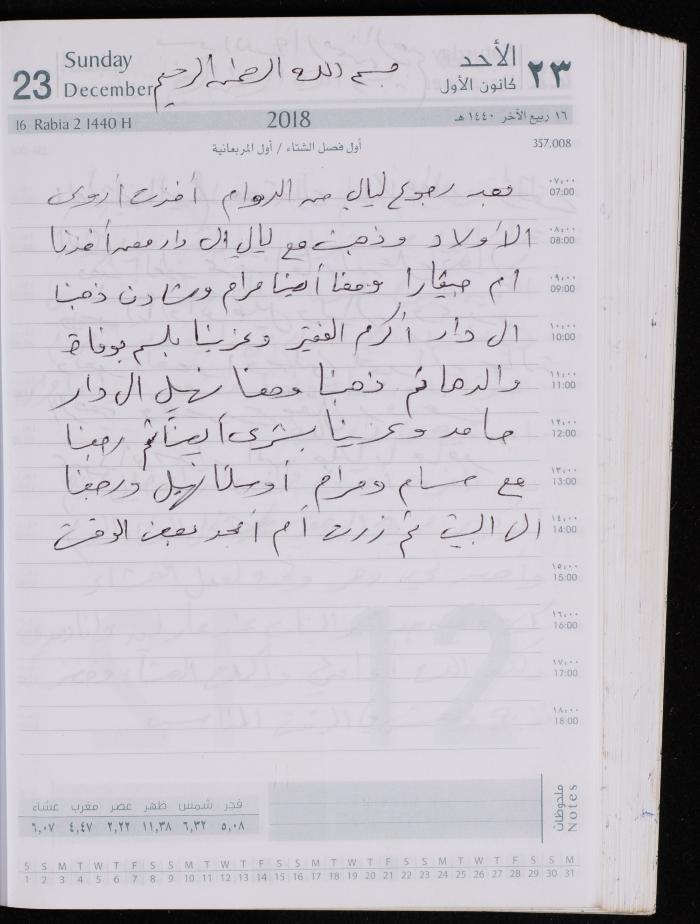 23
Sunday
December
بسم الله الرحمن الرحيم
الأحد
كانون الأول
٢٣
16 Rabia 2 1440 H
2018
١٦ ربيع الآخر ١٤٤٠ هـ
أول فصل الشتاء / أول المربعانية
357.008
بعد رجوع ليال من الدوام أخذت أروى ٠٧،٠٠ 07:00
الأولاد وذهبت مع ليال إلى دار أخذنا ٠٨،٠٠ 08:00
ام ومعنا أيضا مرام وشادن ذهبنا ٠٩،٠٠ 09:00
ال دار أكرم الفقير وعزينا بوفاة ١٠،٠٠ 10:00
والدها ثم ذهبنا ومعنا نهيل ال دار ١١،٠٠ 11:00
حامد وعزينا بشرى أيضا ثم رجعنا ١٢،٠٠ 12:00
مع حسام ومرام أوصلنا نهيل ورجعنا ١٣،٠٠ 13:00
ال البيت ثم زرت أم أمجد بعض الوقت ١٤،٠٠ 14:00
١٥،٠٠ 15:00
١٦،٠٠ 16:00
١٧،٠٠ 17:00
١٨،٠٠ 18:00
12
ملحوظات
Notes
فجر شمس ظهر عصر مغرب عشاء
٥،٠٨ ٦،٣٢ ١١،٣٨ ٢،٢٢ ٤،٤٧ ٦،٠٧
S S M T W T F S S M T W T F S S M T W T F S S M T W T F S S M
1 2 3 4 5 6 7 8 9 10 11 12 13 14 15 16 17 18 19 20 21 22 23 24 25 26 27 28 29 30 31